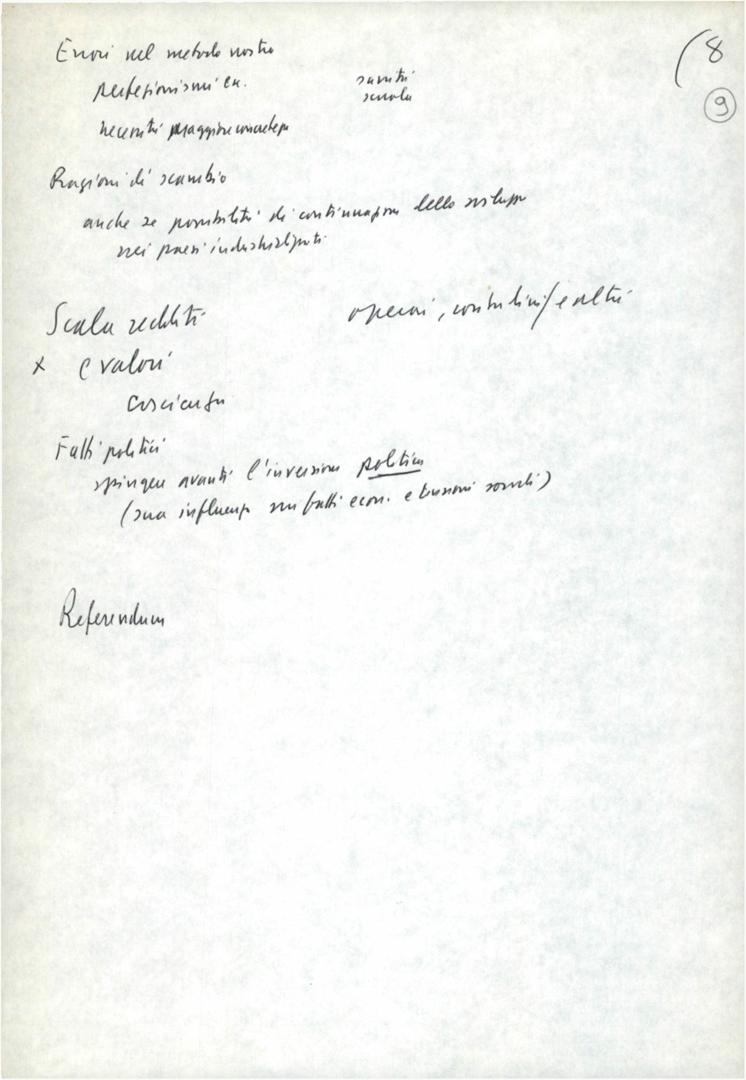 (8
9
Errori nel metodo nostro
perfezionismi ecc. sanità
scuola
necessità maggiore concretezza
Ragioni di scambio
anche se possibilità di continuazione dello sviluppo
nei paesi industrializzati
Scala redditi operai, contadini e altri
x e valori
coscienza
Fatti politici
spingere avanti l'inversione politica
(sua influenza sui fatti econ. e tensioni sociali)
Referendum